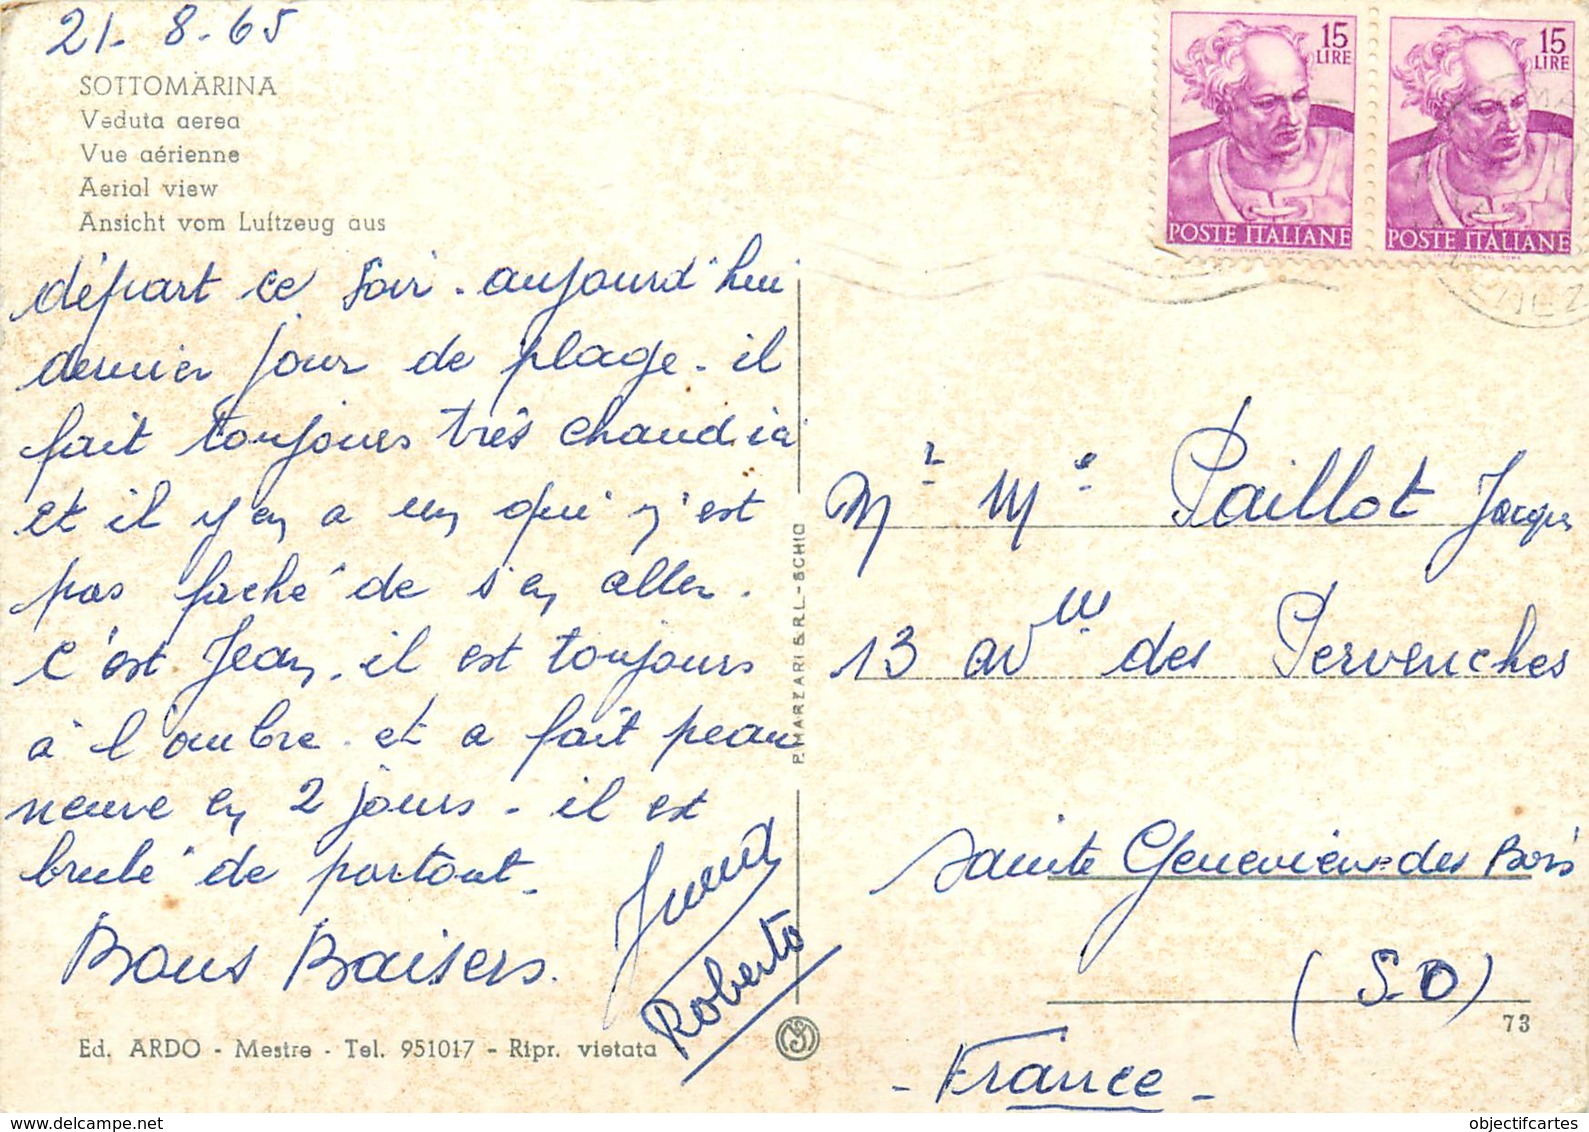 21-8-65
SOTTOMARINA
Veduta aerea
Vue aérienne
Aerial view
Ansicht vom Luftzeug aus
départ ce soir. aujourd'hui
dernier jour de plage. il
fait toujours très chaud ici
et il y en a un qui n'est
pas faché de s'en aller.
c'est Jean. il est toujours
à l'ombre. et a fait peau
neuve en 2 jours - il est
brulé de partout.
Bons Baisers.
Roberto
Ed. ARDO - Mestre - Tel. 951017 - Ripr. vietata
P. MARZARI S.R.L. - SCHIO
15
LIRE
POSTE ITALIANE
15
LIRE
POSTE ITALIANE
Mr Me Paillot Jacques
13 av des Pervenches
Sainte Geneviève des Bois
(S.O)
73
- France -
objectifcartes